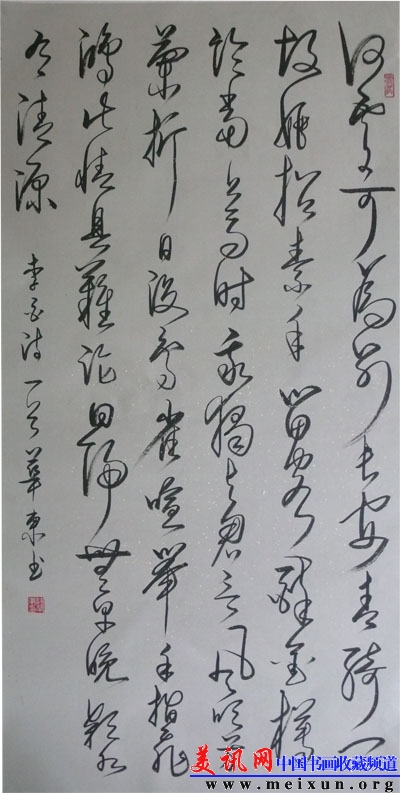 何處可為別長安青綺门
胡姬招素手留客醉金樽
临當上马时我獨与君言风吹芳
蘭折日没鸟雀喧举手指飛
鸿此情具難论同归無早晚颖水
有清源
李白诗一首 東书
美讯网 中国书画收藏频道
www.meixun.org